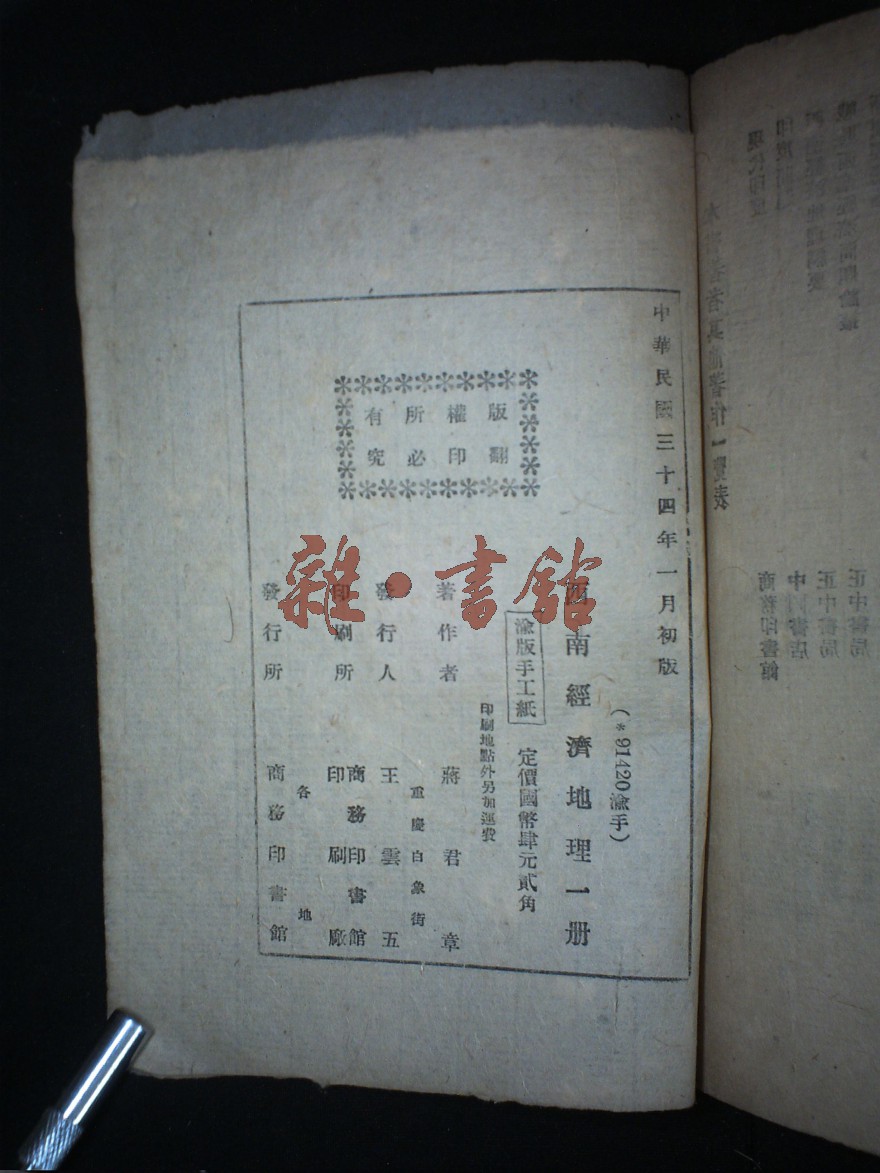 中華民國三十四年一月初版
版權所有
翻印必究
(*91420渝手)
西南經濟地理一册
渝版手工紙
定價國幣肆元貳角
印刷地點外另加運費
著作者 蔣君章
重慶白象街
發行人 王雲五
印刷所 商務印書館
印刷廠
各地
發行所 商務印書館
雜·書館